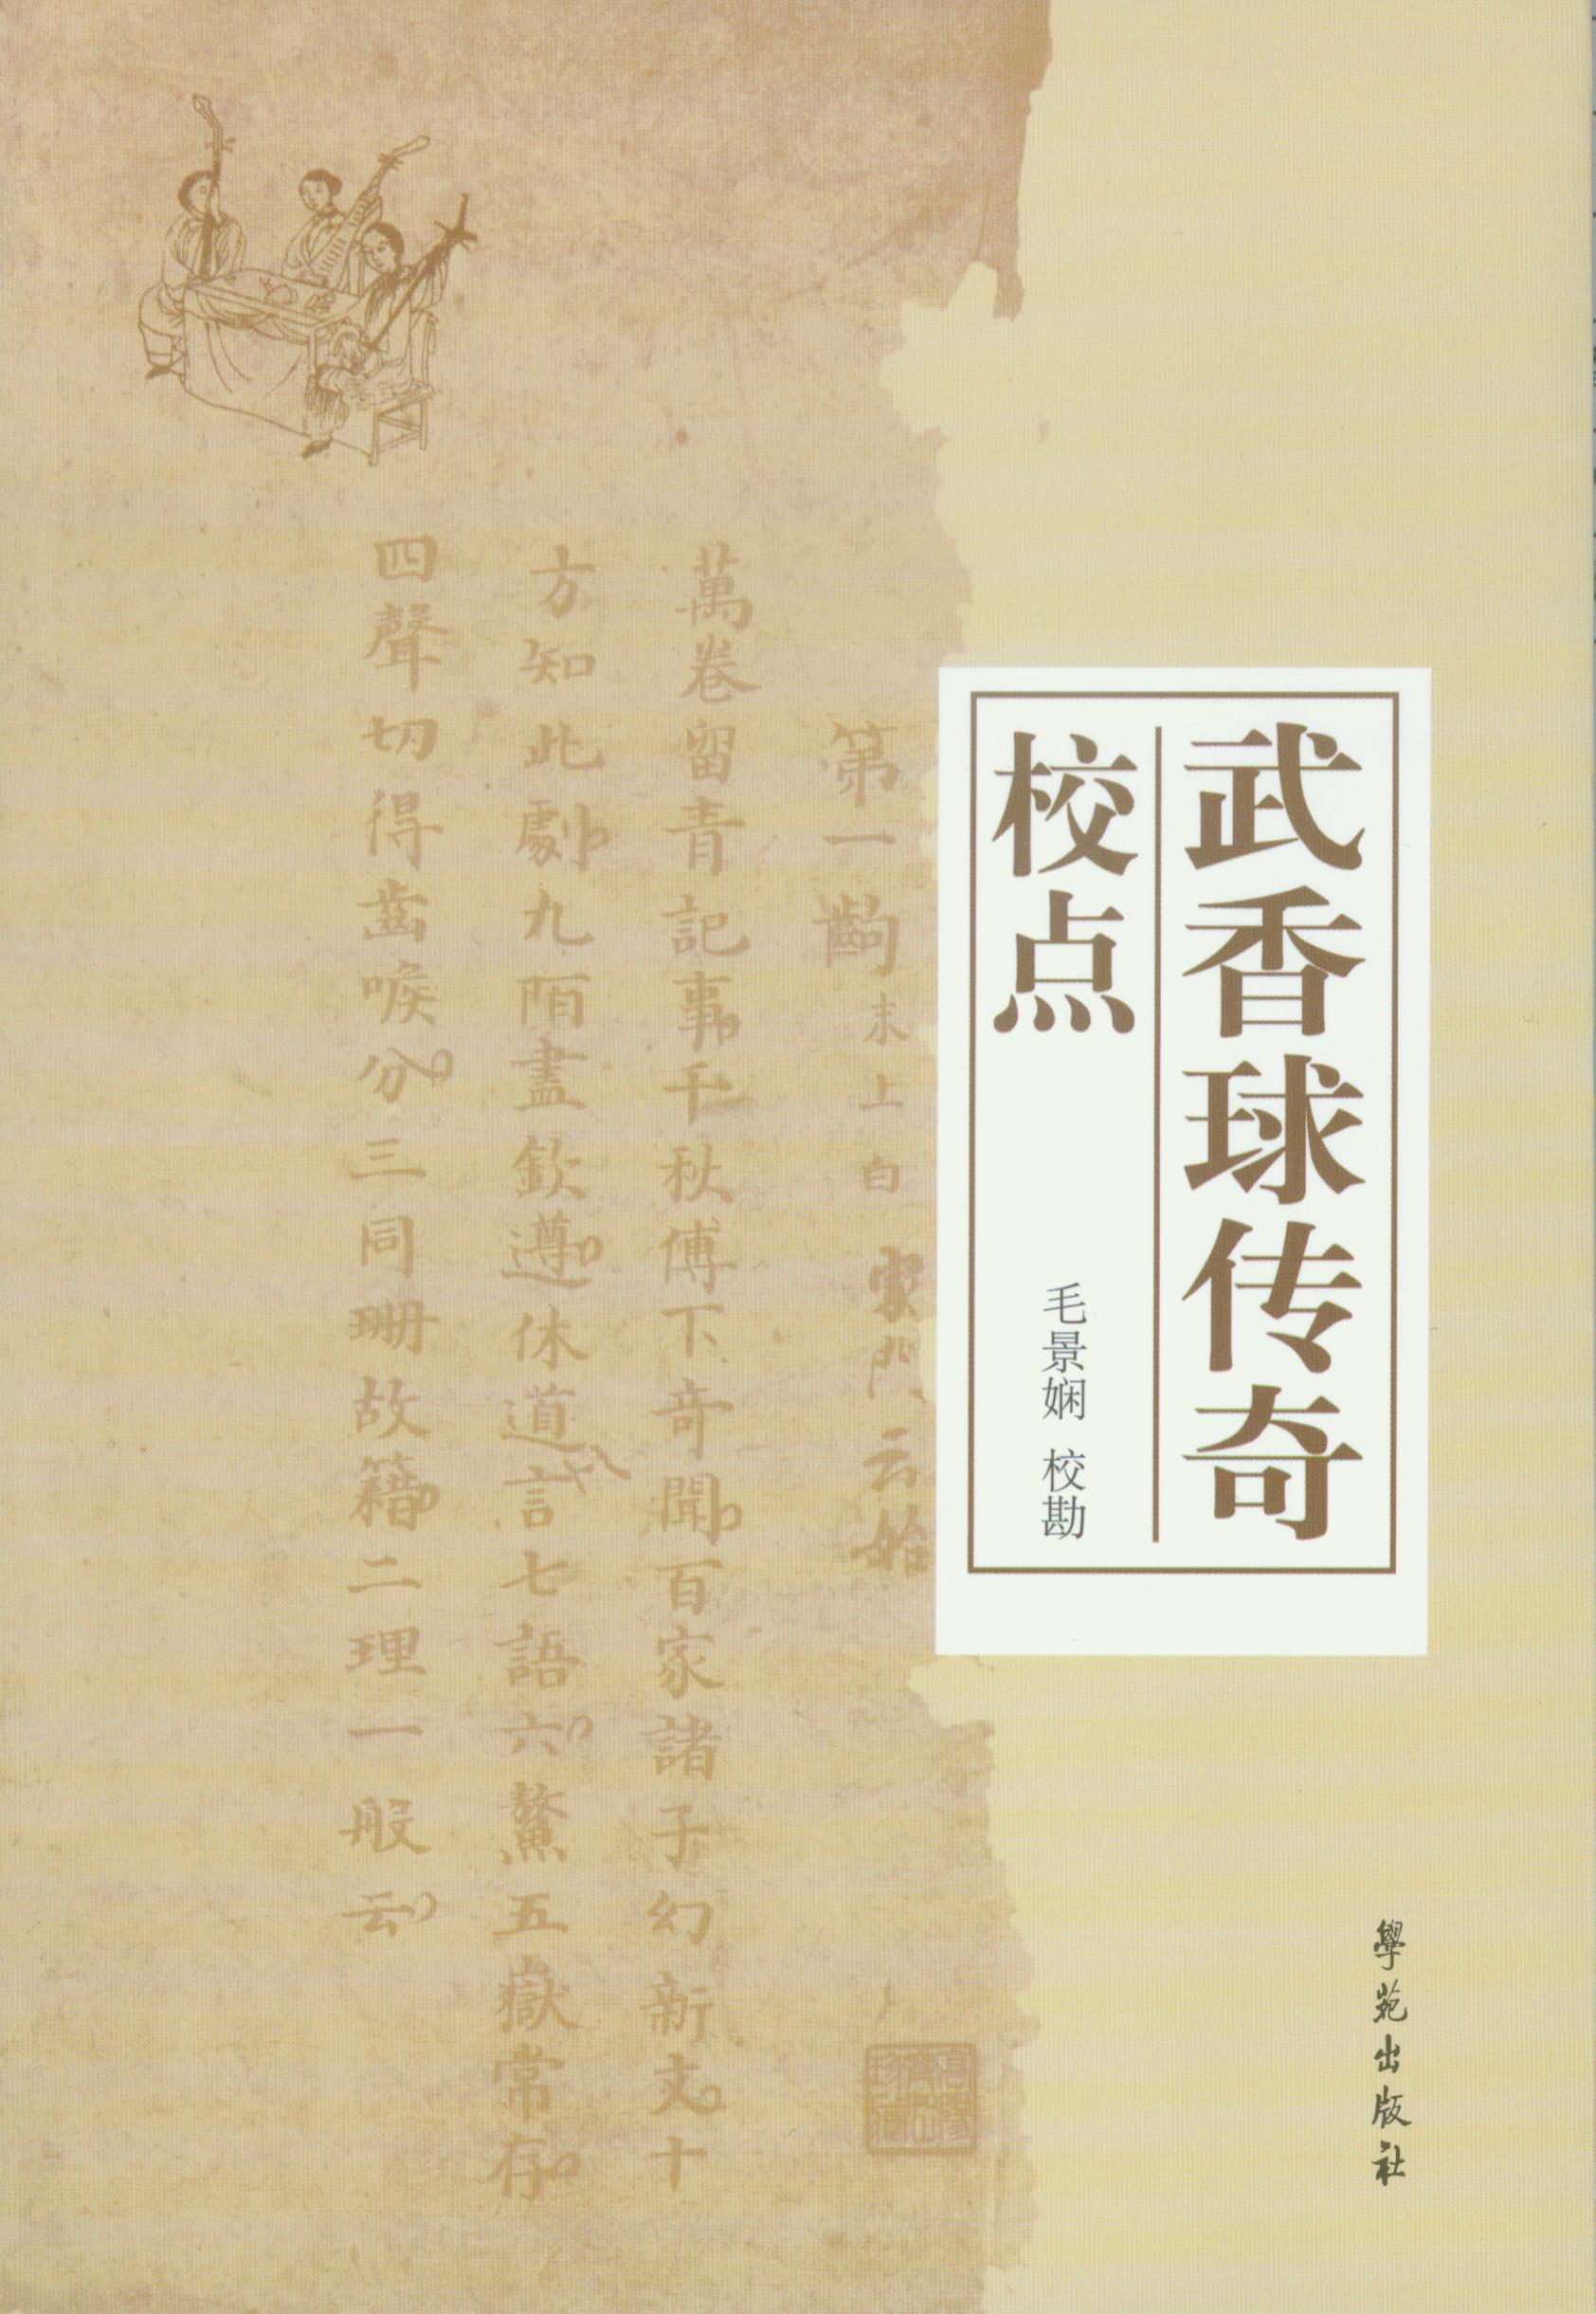 武香球传奇
校点
毛景娴 校勘
學苑出版社
第一齣 末上白 家門云始
萬卷留青記事千秋傅下奇聞百家諸子幻新文十
方知此劇九陌盡欽遵休道八言七語六鰲五嶽常存
四聲切得齒喉分三同珊故籍二理一般云